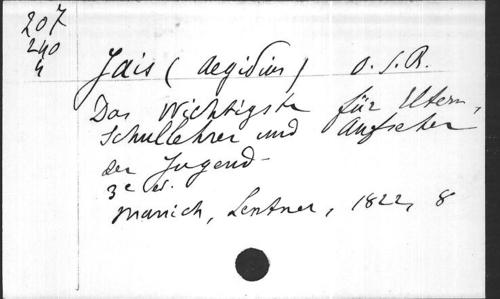 207
240
4
Jais (Aegidius) O.S.B.
Das Wichtigste für Eltern,
Schullehrer und Aufseher
der Jugend -
3e ed.
Munich, Lentner, 1822, 8